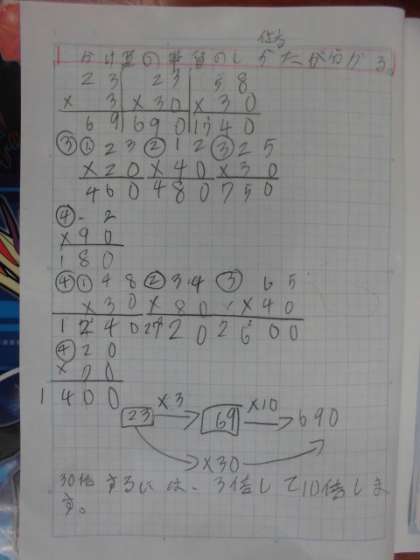 かけ算の筆算のしかた
23 23 58
×3 ×30 ×30
69 690 1740
③ ①23 ②12 ③25
×20 ×40 ×30
460 480 750
④ 2
×90
180
④ ①48 ②34 ③65
×30 ×80 ×40
1240 2720 2600
④20
1400
23 ×3 69 ×10 690
×30
30倍するには、3倍して10倍しま
す。